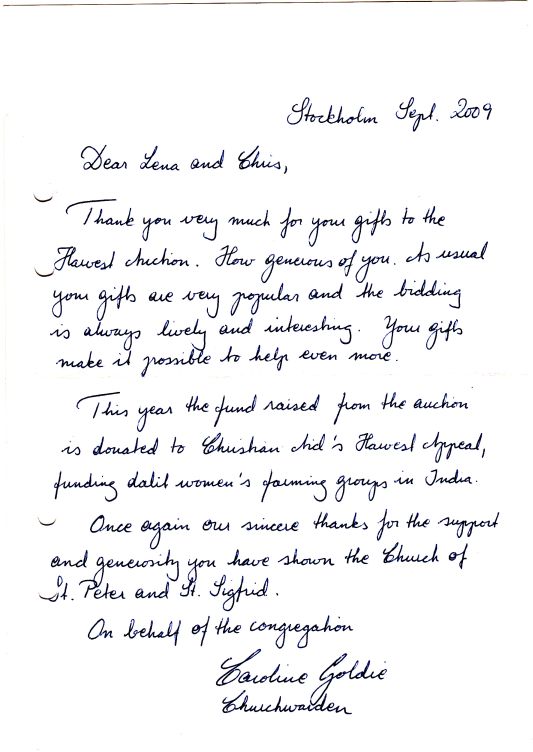 Stockholm Sept. 2009
Dear Lena and Chris,
Thank you very much for your gifts to the
Harvest Auction. How generous of you. As usual
your gifts are very popular and the bidding
is always lively and interesting. Your gifts
make it possible to help even more.
This year the fund raised from the auction
is donated to Christian Aid's Harvest Appeal,
funding dalit women's farming groups in India.
Once again our sincere thanks for the support
and generosity you have shown the Church of
St. Peter and St. Sigfrid.
On behalf of the congregation
Caroline Goldie
Churchwarden